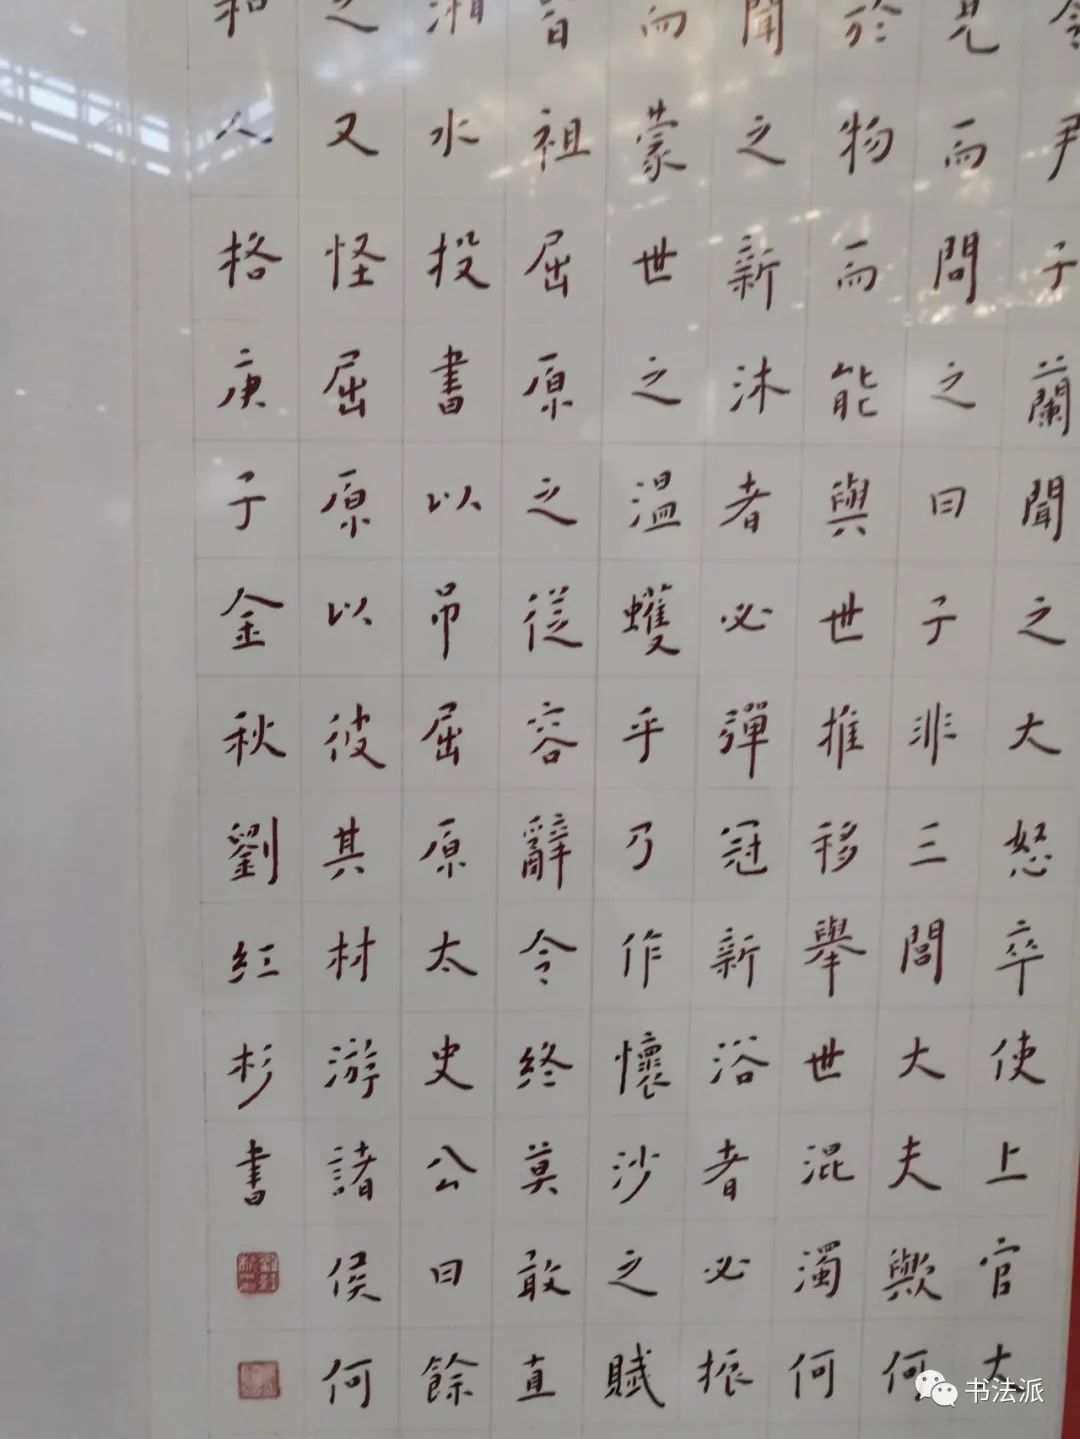 令尹子蘭聞之大怒卒使上官大
見而問之曰子非三閭大夫歟何
於物而能與世推移舉世混濁何
聞之新沐者必彈冠新浴者必振
而蒙世之溫蠖乎乃作懷沙之賦
皆祖屈原之從容辭令終莫敢直
湘水投書以吊屈原太史公曰餘
之又怪屈原以彼其材游諸侯何
和人格庚子金秋劉紅杉書
书法派